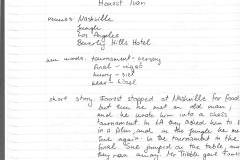 Honest Ivan
venues: Nashville
jungle
Los Angeles
Beverly Hills Hotel
new words: tournament -
final -
luxury -
near -
short story: Forrest stopped at Nashville for food
but then he met an old man,
and he wrote him into a chess
tournament in LA they asked him to be
in a film, and in the jungle he met
Sue again. In the tournament in the
final Sue jumped on the table, and
they ran away.